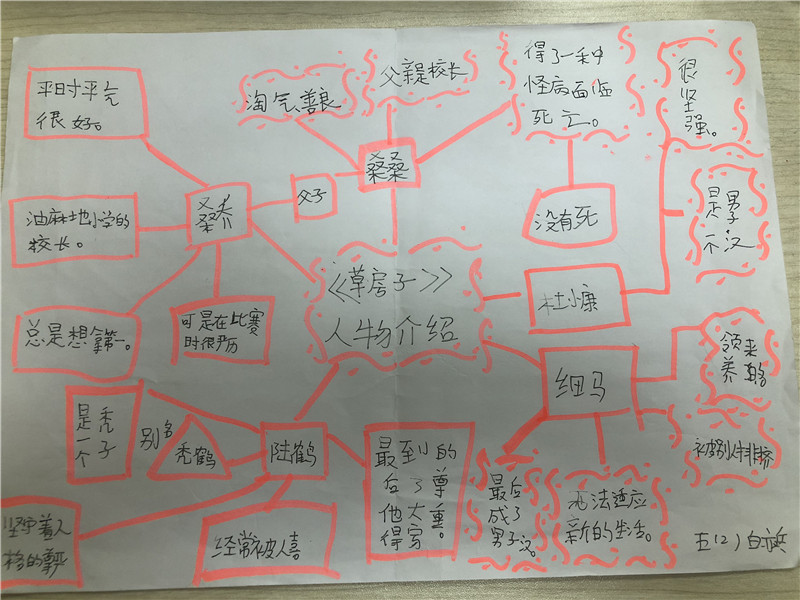 平日寸平气
很好。
淘气、善良
父亲是校长
得了一种
怪病面临
死亡。
很坚强。
桑桑
桑乔
父子
油麻地小学的
校长。
没有死
是男子汉
《草房子》
人物介绍
杜小康
总是想拿第一。
可是在比赛
时很严厉
细马
领来
养的
是一个秃子
别名
秃鹤
陆鹤
最后他得到了大家的尊重。
最后
成了
男子汉。
无法适应
新的生活。
被别人排挤
坚守着人
格的尊严
经常被人喜
五(2)